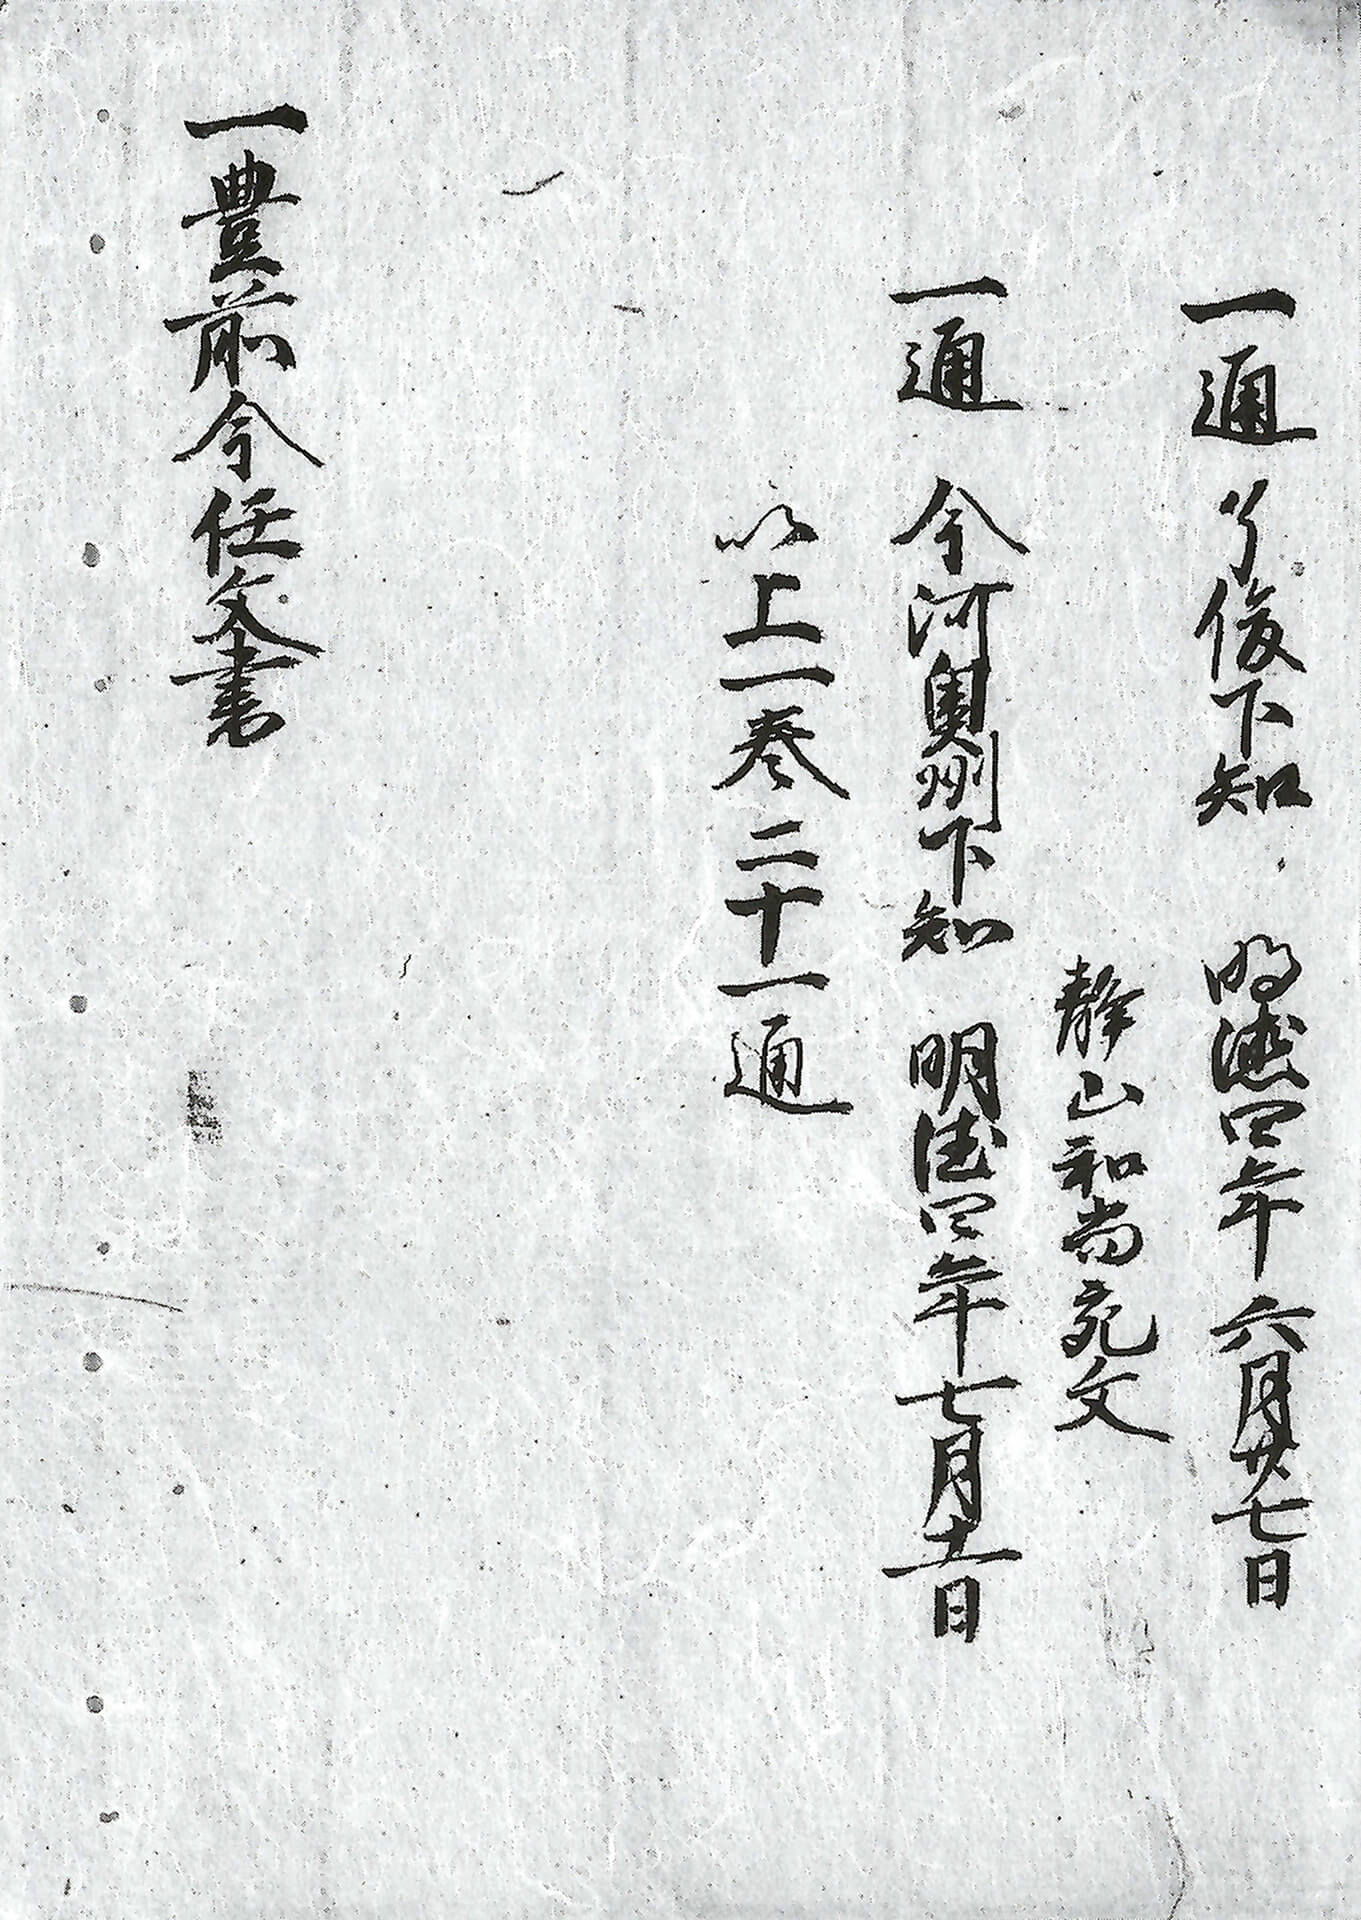 一通 了俊下知 明徳四年六月廿七日
静山和尚充文
一通 今河奥州下知 明徳四年七月十一日
以上一巻二十一通
一豊前今任文書